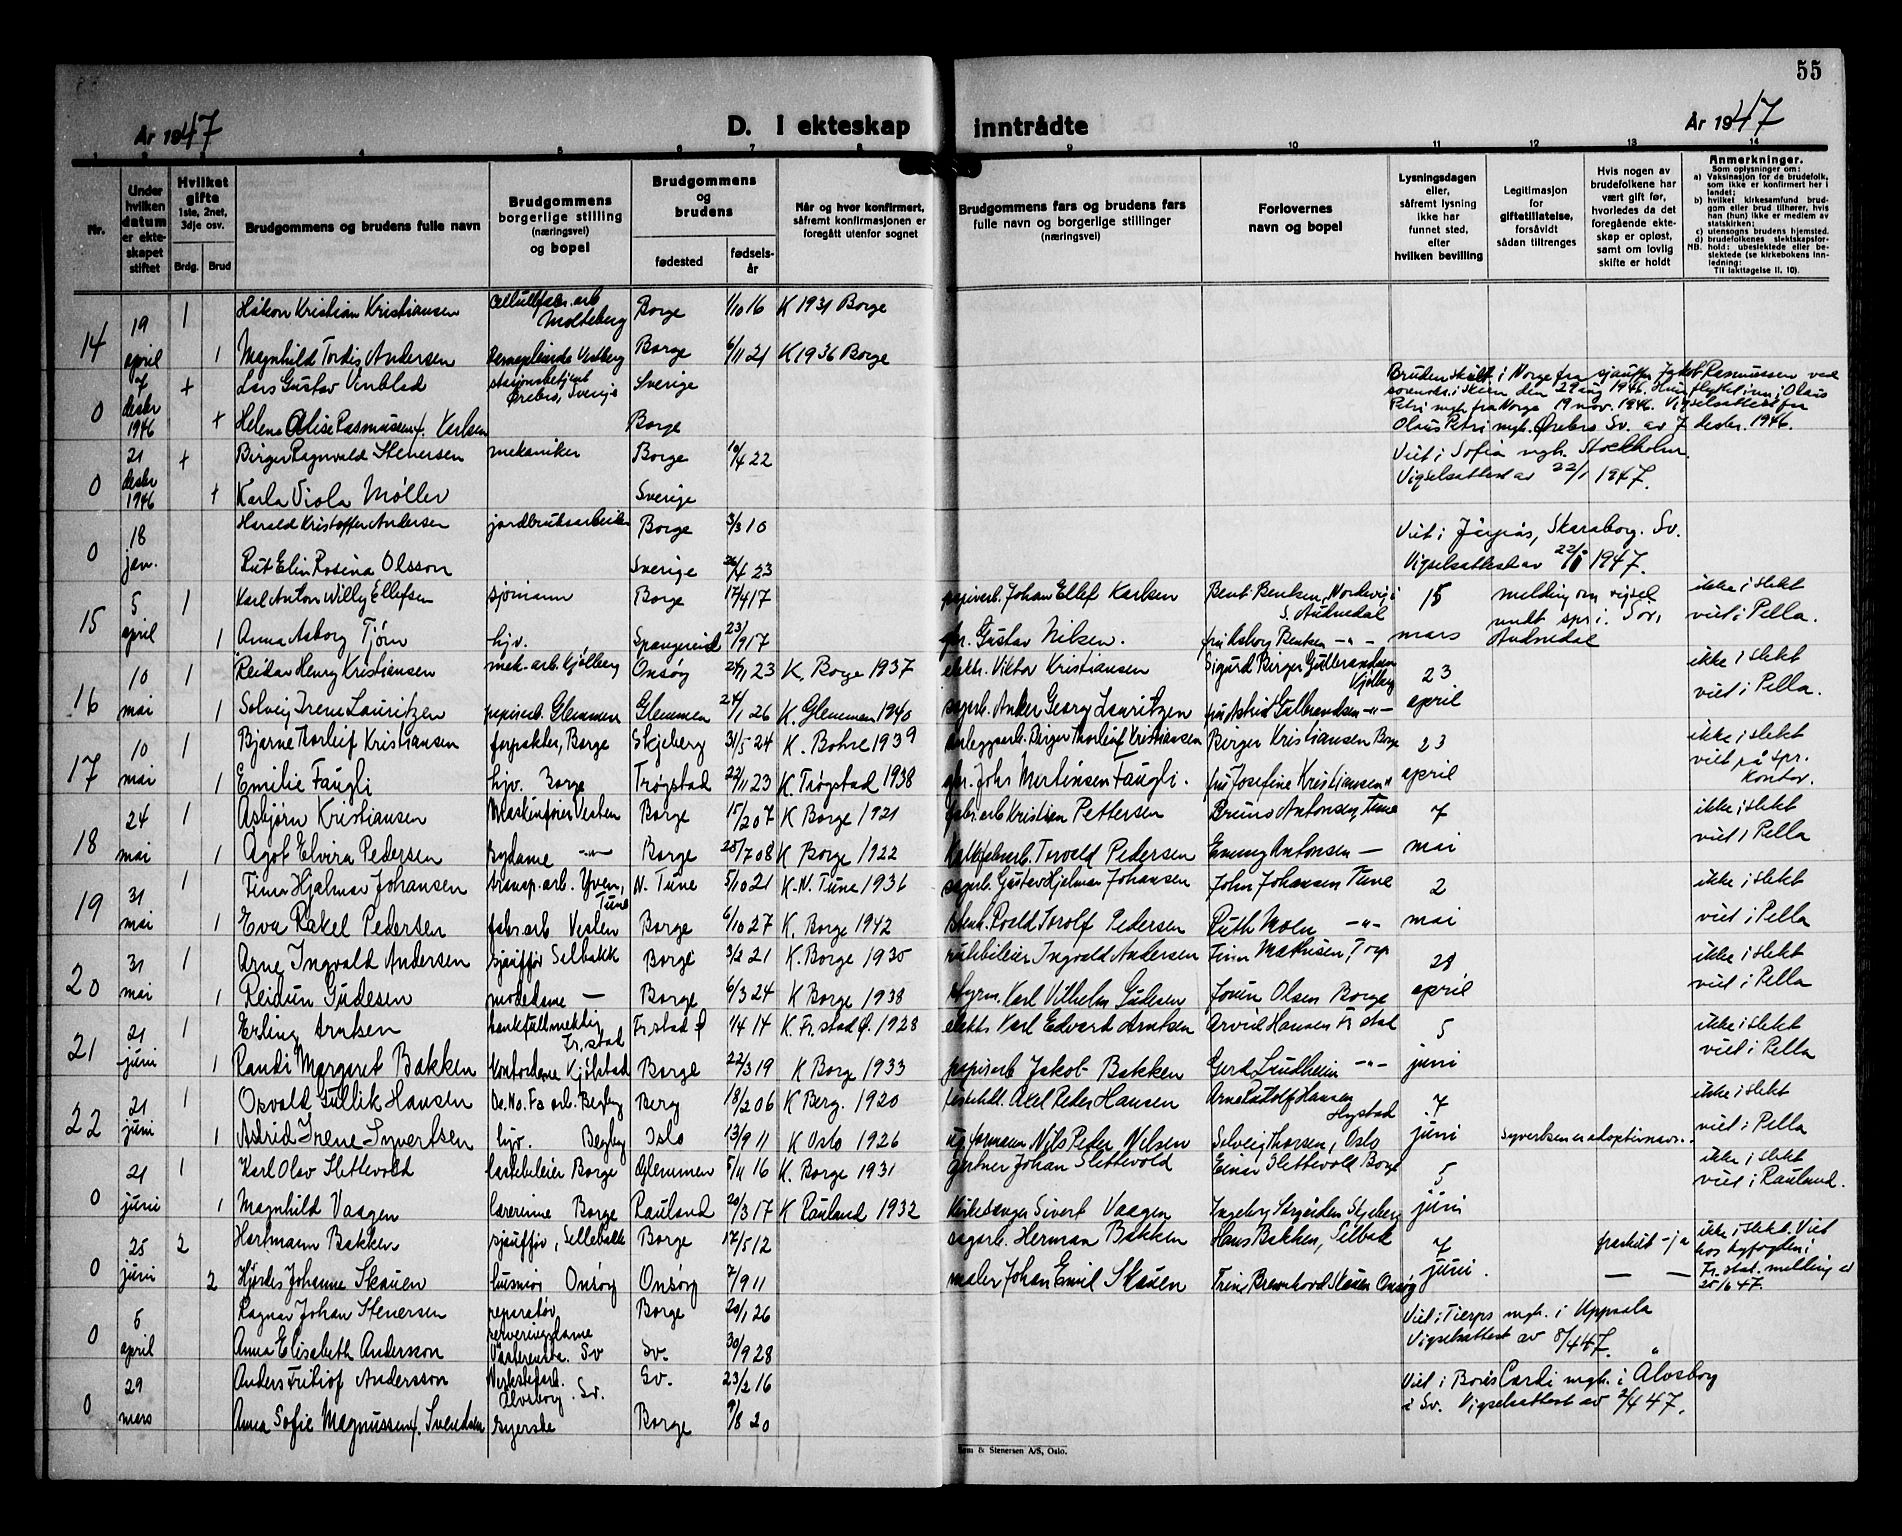 55
År 1947
D. I ekteskap inntrådte
År 1947
1 2 3 4 5 6 7 8 9 10 11 12 13 14
Nr.
Under hvilken datum er ekteskapet stiftet
Hvilket gifte 1ste, 2net, 3dje osv.
Brdg. Brud
Brudgommens og brudens fulle navn
Brudgommens borgerlige stilling (næringsvei) og bopel
Brudgommens og brudens
fødested
fødselsår
Når og hvor konfirmert, såfremt konfirmasjonen er foregått utenfor sognet
Brudgommens fars og brudens fars fulle navn og borgerlige stillinger (næringsvei)
Forlovernes navn og bopel
Lysningsdagen eller, såfremt lysning ikke har funnet sted, efter hvilken bevilling
Legitimasjon for giftetillatelse, forsåvidt sådan tiltrenges
Hvis nogen av brudefolkene har vært gift før, hvorledes da det foregående ekteskap er opløst, samt om lovlig skifte er holdt
Anmerkninger.
Som oplysninger om:
a) Vaksinasjon for de brudefolk, som ikke er konfirmert her i landet;
b) hvilket kirkesamfund brudgom eller brud tilhører, hvis han (hun) ikke er medlem av statskirken;
c) utensogns brudens hjemsted.
d) brudefolkenes slektskapsforhold: ubeslektede eller beslektede (se kirkebokens innledning:
NB. Til iakttagelse II. 10).
14 19 april 1 Håkon Kristian Kristiansen Cellullfabr. arb Molteberg Borge 1/10 16 K 1931 Borge
1 Magnhild Tordis Andersen Vestberg Borge 6/11 21 K 1936 Borge
0 7 desbr 1946 + Lars Gustav Vinblad stasjonsbetjent Örebro, Sverige Sverige
+ Helene Alise Rasmussen f. Karlsen Borge
Bruden skilt i Norge fra sjauffør Jakob Rasmussen ved
i Skien den 29 aug 1946. Hun flyttet inn i Olaus
Petri mgh. fra Norge 19 nov. 1946. Vigselsattest fra
Olaus Petri mgh. Örebro Sv. av 7 desbr. 1946.
0 21 desbr 1946 + Birger Ragnvald Stenersen mekaniker Borge 10/4 22 Viet i Sofia mgh. Stockholm.
+ Karla Viola Møller Sverige Vigselsattest av 22/1 1947.
0 18 jan. Harald Kristoffer Andersen jordbruksarbeider Borge 3/3 10 Viet i Skaraborg. Sv.
Rut Elin Rosina Olsson Sverige 26/4 23 Vigselsattest av 1947.
15 5 april 1 Karl Anton Willy Ellefsen sjømann Borge 17/4 17 papirarb. Johan Ellef Karlsen Bent Bentsen, S. Audnedal 15 mars melding om vigsel ikke i slekt
1 Anna Asborg Tjørn hjv. Spangereid 23/9 17 Gustav Nilsen. fru Asborg Bentsen -"- Audnedal viet i Pella.
16 10 mai 1 Reidar Henry Kristiansen mek. arb. Kjølberg Onsøy 23 K. Borge 1937 elektr. Viktor Kristiansen Sigurd Birger Gulbrandsen Kjølberg 23 april ikke i slekt
1 Solveig Irene Lauritzen papirarb. Glemmen Glemmen 24/1 26 K. Glemmen 1940 sagarb. Anker Georg Lauritzen fru Astrid Gulbrandsen -"- viet i Pella.
17 10 mai 1 Bjarne Thorleif Kristiansen forpakter, Borge Skjeberg 31/5 24 K. 1939 anleggsarb. Birger Thorleif Kristiansen Birger Kristiansen Borge 23 april ikke i slekt
1 Emilie Faugli hjv. Borge Trøgstad 22/11 23 K. Trøgstad 1938 Johs Martinsen Faugli. fru Josefine Kristiansen " viet på spr. kontor.
18 24 mai 1 Asbjørn Kristiansen Maskinfører Vesten Borge 15/2 07 K Borge 1921 fabr. arb Kristian Pettersen Bruno Antonsen, Tune 7 mai ikke i slekt
1 Agot Elvira Pedersen sydame -"- Borge 28/7 08 K Borge 1922 Torvald Pedersen Emmy Antonsen — viet i Pella
19 31 mai 1 Finn Hjalmar Johansen transp. arb. Yven, Tune N. Tune 5/10 21 K. N. Tune 1936 sagarb. Gustav Hjelmar Johansen John Johansen Tune 2 mai ikke i slekt
1 Eva Rakel Pedersen fabr. arb Vesten Borge 6/10 27 K. Borge 1942 Torolf Pedersen Ruth Moen -"- viet i Pella
20 31 mai 1 Arne Ingvald Andersen sjauffør Selbakk Borge 3/2 21 K. Borge 1935 rutebileier Ingvald Andersen Finn Mathisen, Torp 28 april ikke i slekt
1 Reidun Gudesen motedame — Borge 6/3 24 K Borge 1938 Karl Vilhelm Gudesen Olsen Borge viet i Pella
21 21 juni 1 Erling Arntsen bankfullmektig Fr.stad Fr.stad Ø 1/4 14 K. Fr.stad Ø. 1928 elektr. Karl Edvart Arntsen Arvid Hansen Fr stad 5 juni ikke i slekt
1 Randi Margaret Bakken kontordame Kjølstad Borge 22/3 19 K Borge 1933 papirarb Jakob Bakken Gerd Lindheim -"- viet i Pella
22 21 juni 1 Osvald Gullik Hansen De. No. Fa arb. Begby Berg 18/2 06 K Berg. 1920 Axel Peder Hansen Arne Rudolf Hansen 7 juni ikke i slekt
1 Astrid Irene Syvertsen hjv. Begby Oslo 13/9 11 K Oslo 1926 formann Nils Peder Nilsen Solveig Thorsen, Oslo Syvertsen er adoptivnavn. viet i Pella
0 21 juni 1 Karl Olav Slettevold lastebileier Borge Glemmen 5/11 16 K. Borge 1931 gartner Johan Slettevold Einar Slettevold Borge 5 juni ikke i slekt
1 Magnhild Vaagen lærerinne Borge Rauland 20/3 17 K Rauland 1932 Kirkesanger Sivert Vaagen Ingeborg Skjeberg viet i Rauland.
0 25 juni 2 Hartmann Bakken sjauffør, Sellebakk Borge 17/5 12 sagarb. Herman Bakken Hans Bakken, Selbak 7 juni. fraskilt - ja ikke i slekt. Viet hos byfogden i
2 Hjørdis Johanne Skauen husmor Onsøy Onsøy 7/9 11 maler Johan Emil Skauen Skauen Onsøy — — Fr. stad. melding av 25/6 47.
0 6 april Ragnar Johan Stenersen reparatør Borge 20/1 26 Viet i Tierps mgh. i Uppsala
Anna Elisabeth Andersson serveringsdame Sv Sv. 30/9 28 Vigselsattest av 8/4 47. "
0 29 mars Anders Fritiof Andersson Älvsborg. Sv. Sv. 23/2 16 Viet i Borås mgh. i Älvsborg
Anna Sofie Magnussen f. Svendsen syerske Borge 9/8 20 i Sv. Vigselsattest av 2/4 47.
& Stenersen A/S, Oslo.